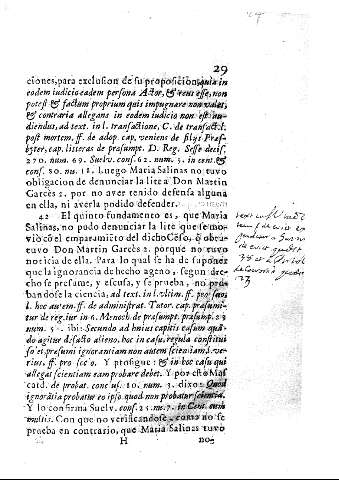 29
ciones, para exclusion de su proposicion, quia in
eodem iudicio eadem persona Actor, & reus esse, non
potest & factum proprium quis impugnare non valet,
& contraria allegans in eodem iudicio non est au-
diendus, ad text. in l. transactione, C. de transact. l.
post mortem, ff. de adop. cap. veniens de filijs Pres-
byter, cap. litteras de præsumpt. D. Reg. Sesse decis,
270. num. 69. Suelv. cons. 62. num. 3. in cent. &
cons. 80. nu. 11. Luego Maria Salinas no tuvo
obligacion de denunciar la lite à Don Martin
Garcès 2. por no aver tenido defensa alguna
en ella, ni averla podido defender.
42 El quinto fundamento es, que Maria
Salinas, no pudo denunciar la lite que se mo-
viò cõ el emparamiẽto del dicho Cẽso, ò obstò
tuvo Don Martin Garcès. porque no tuvo
noticia de ella. Para lo qual se ha de suponer
que la ignorancia de hecho ageno, segun dere-
cho se presume, y escusa, y se prueba, no pro-
bandose la ciencia, ad text. in l. vltim. ff. pro suo,
l. hoc autem ff. de administrat. Tutor. cap. præsumi-
tur de reg. iur in 6. Menoch. de præsumpt. præsumpt. 23
num. 5. ibi: Secundo ad huius capitis casum quã-
do agitur d facto alieno. hoc in casu, regula constitui
so et præsumi ignorantiam non autem scientiam l. ve-
rius. ff. pro socio. Y prosigue: & in hoc casu qui
allegat scientiam eam probare debet. Y por esto Mas
card. de probat. conc us. 10. num. 3. dixo: Quod
ignorãtia probatur eo ipso quod non probatur scientia.
Y lo confirma Suelv. cons. 25. nu. 7. in Cent. num
multis. Con que no verificandose, como no se
prueba en contrario, que Maria Salinas tuvo
H no-